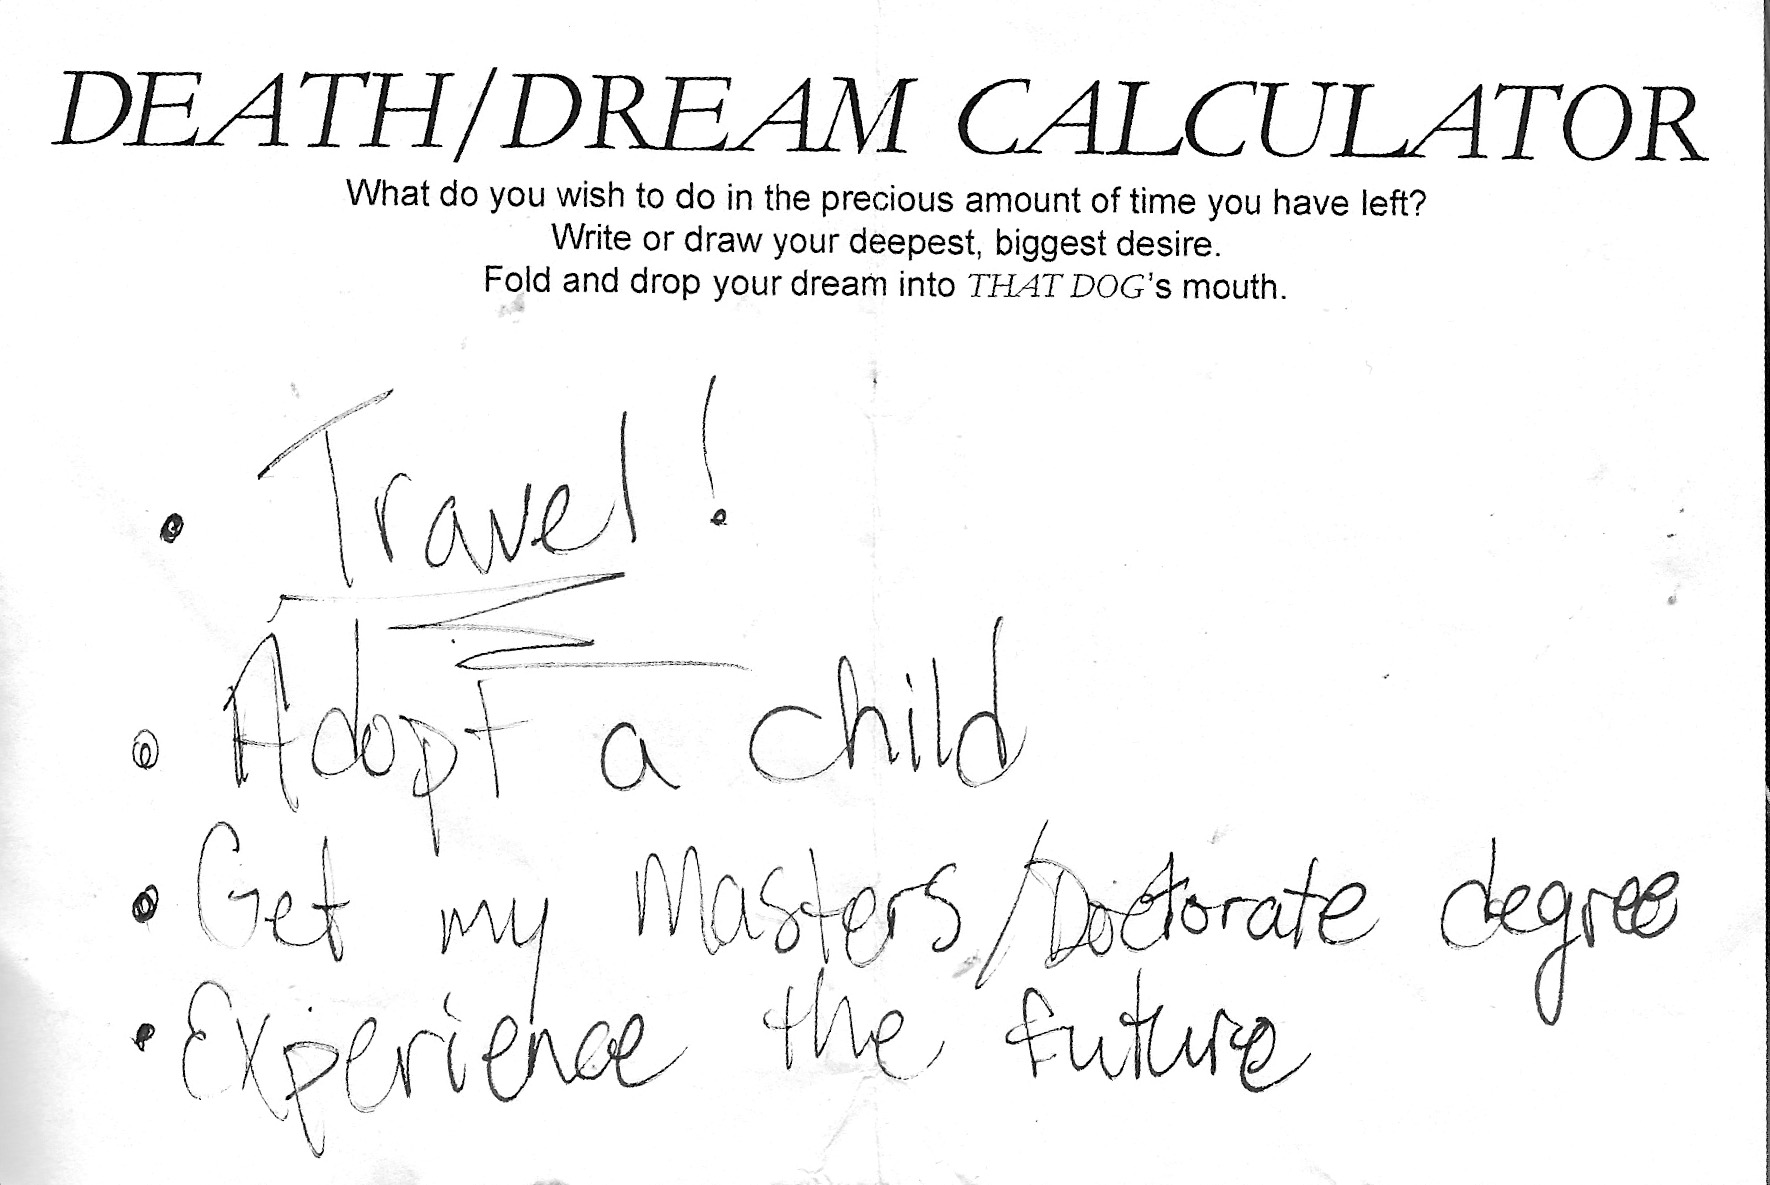 DEATH/DREAM CALCULATOR
What do you wish to do in the precious amount of time you have left?
Write or draw your deepest, biggest desire.
Fold and drop your dream into THAT DOG's mouth.
• Travel!
• Adopt a child
• Get my Masters/Doctorate degree
• Experience the future